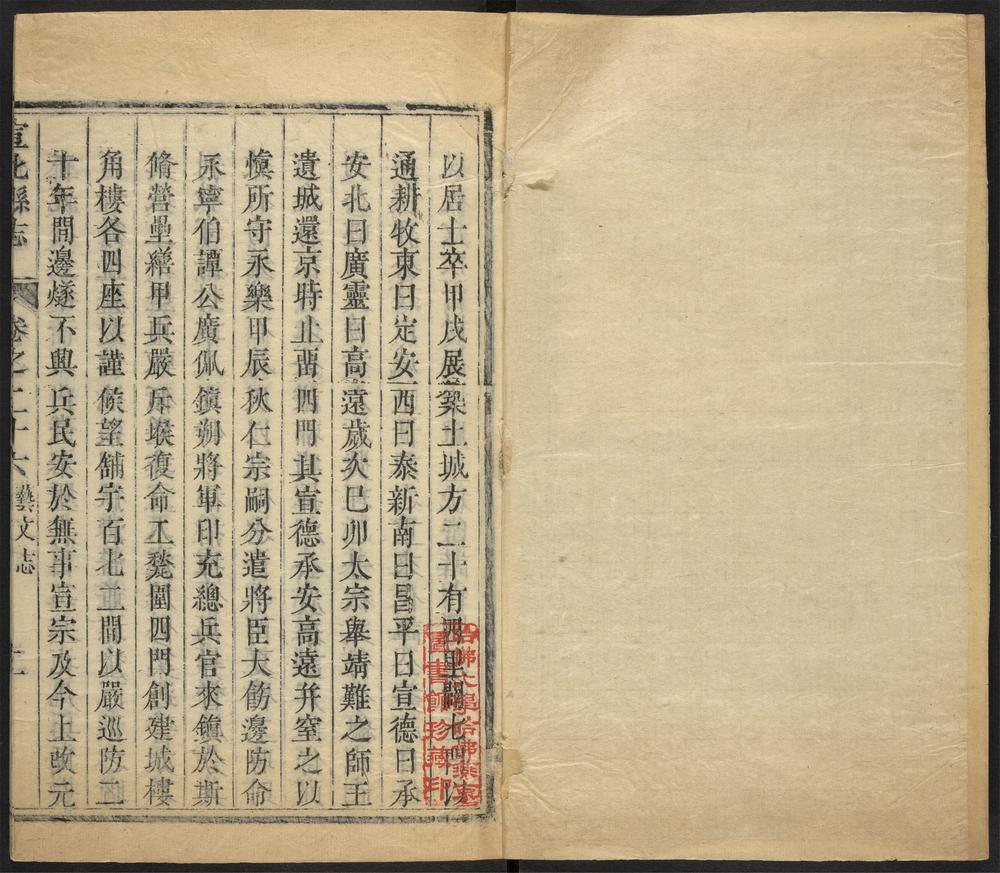 以居士卒甲戌展築土城方二十有四里闢七門以
通耕牧東曰定安西曰泰新南曰昌平曰宣德曰承
安北曰廣靈曰高遠歲次巳卯太宗舉靖難之師王
遺城還京時止畱四門其宣德承安高遠并窒之以
慎所守永樂甲辰秋仁宗嗣分遣將臣大飭邊防命
永寧伯譚公廣佩鎮朔將軍印充總兵官來鎮於斯
脩營壘繕甲兵嚴斥堠復命工甃圍四門創建城樓
角樓各四座以謹候望舖宇百北並間以嚴巡防二
十年間邊燧不興兵民安於無事宣宗及今上改元
宣化縣志 卷之二十六 藝文志
哈佛大學哈佛燕京
圖書館珍藏印